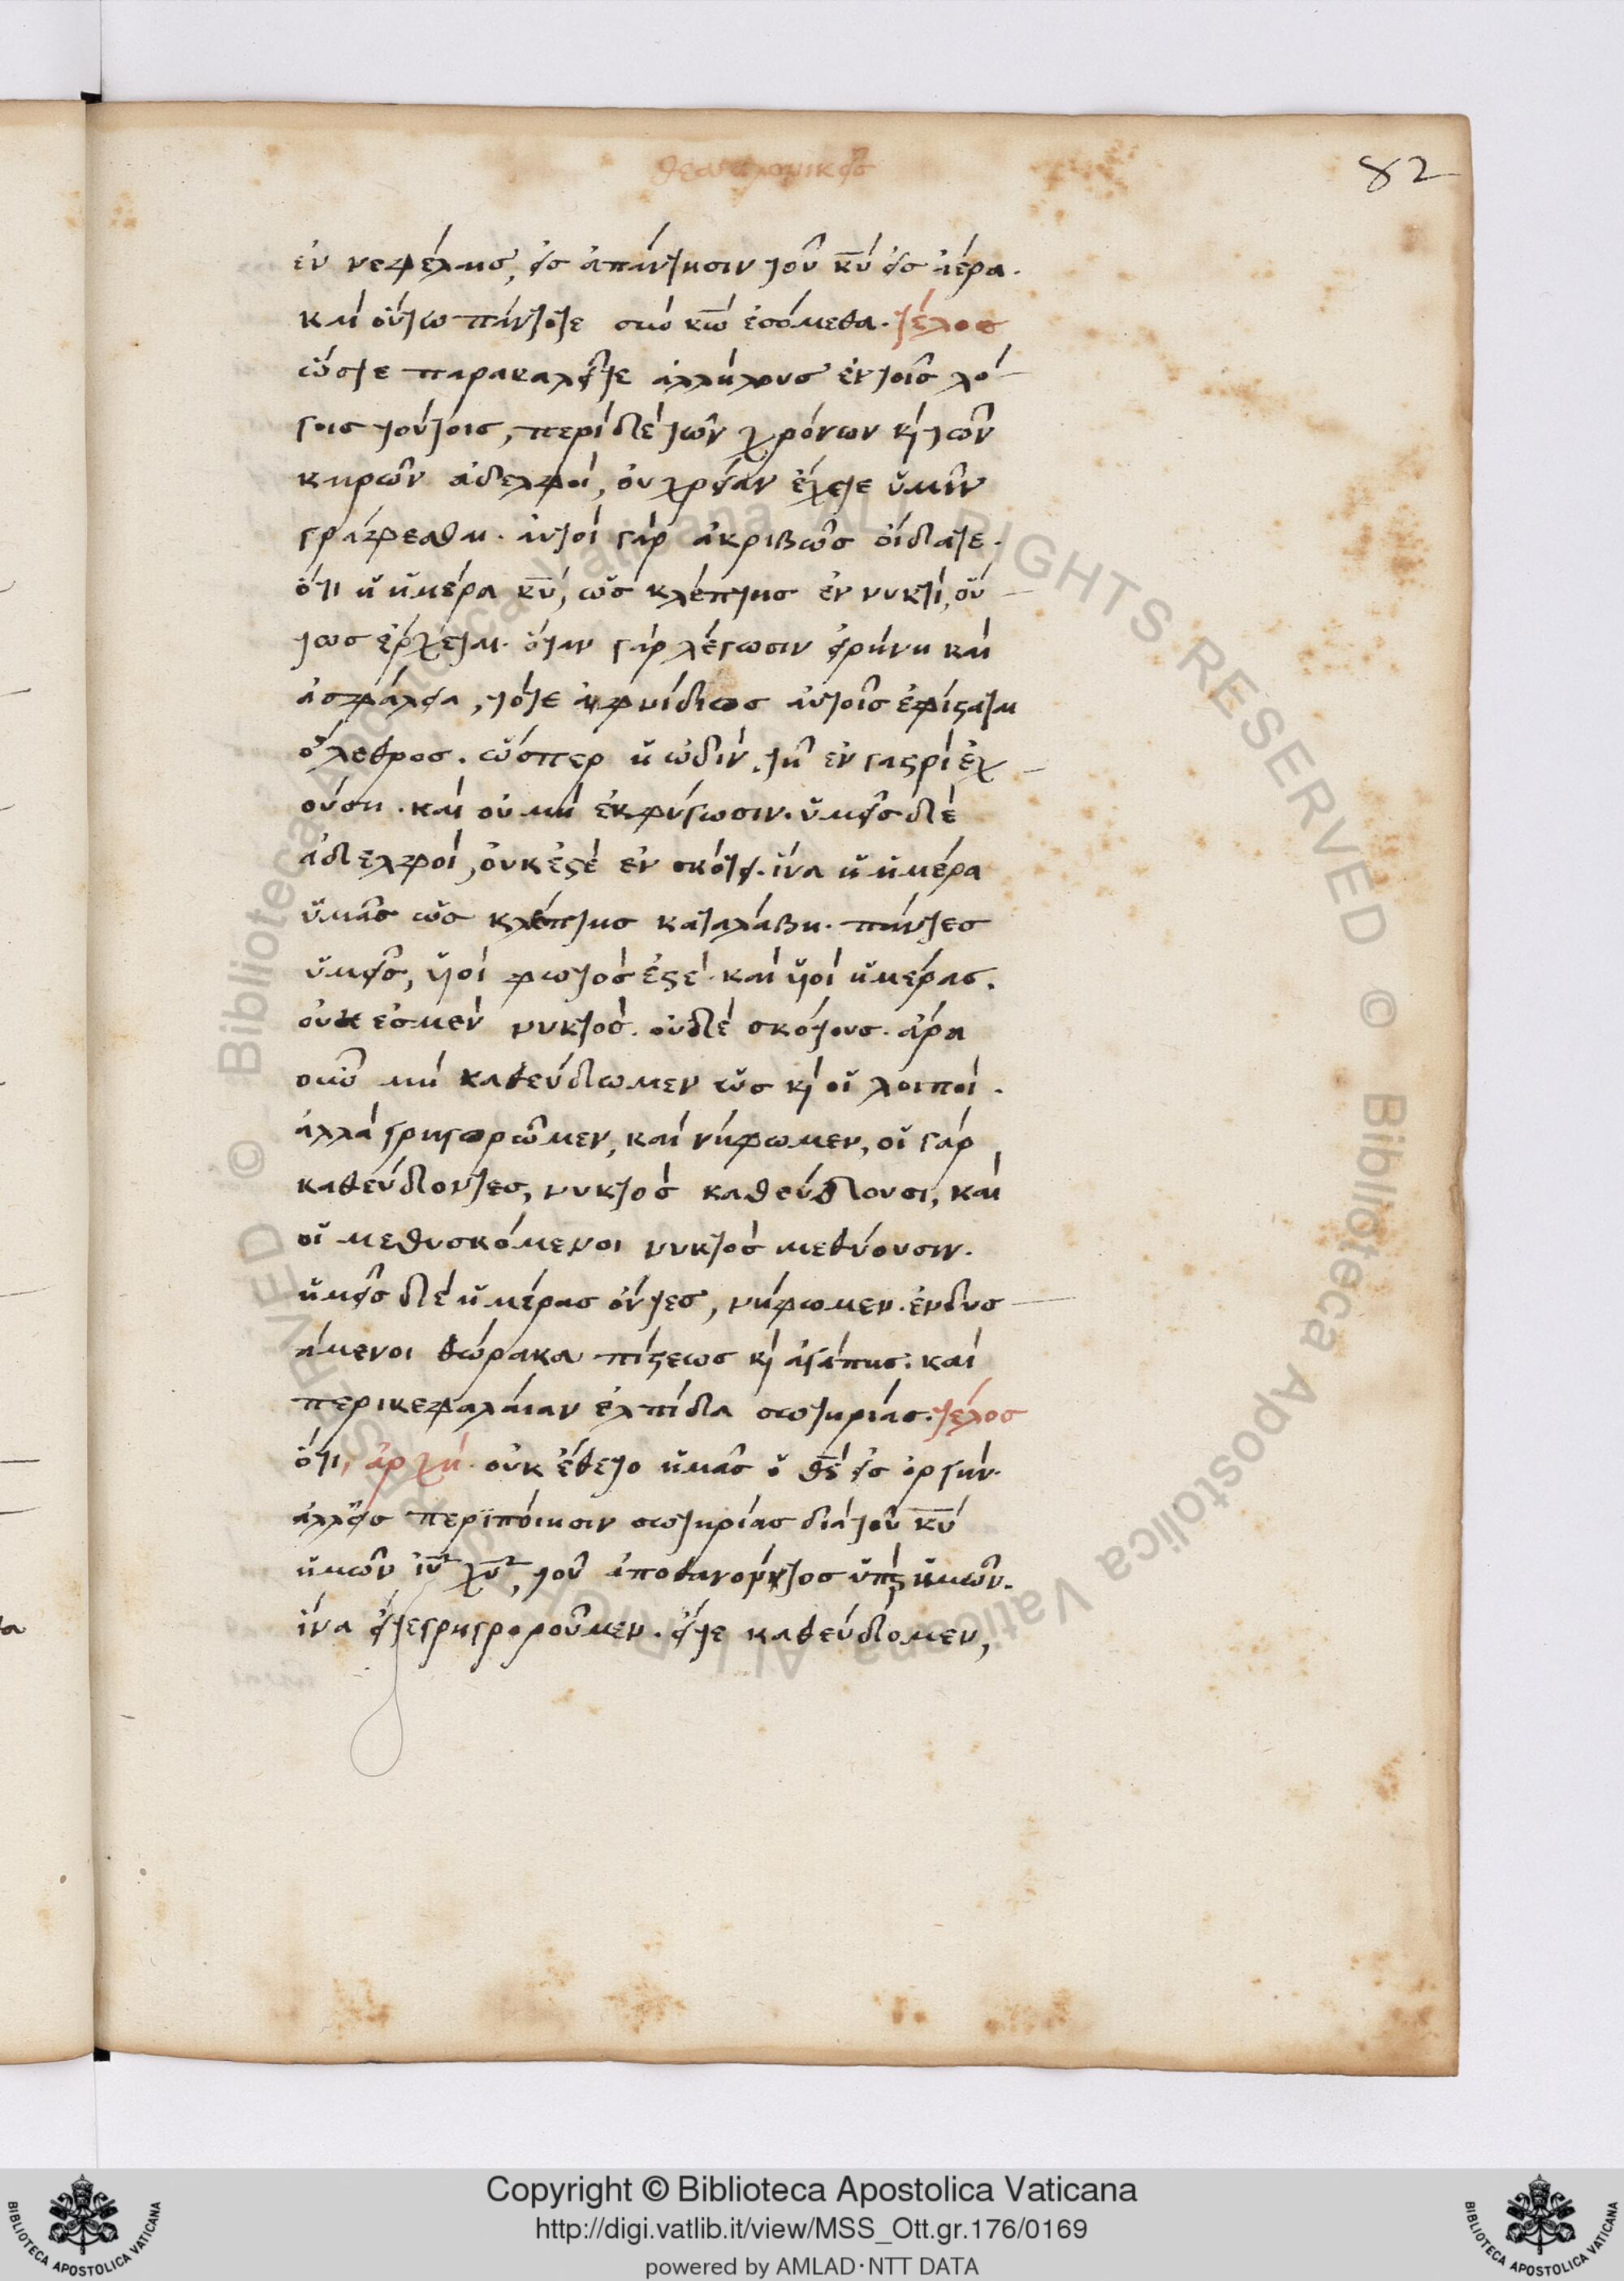 θεσσαλονικεῖς
82
ἐν νεφέλαις, εἰς ἀπάντησιν τοῦ κῡ εἰς ἀέρα.
καὶ οὕτω πάντοτε σὺν κω̄ ἐσόμεθα. τέλος
ὥστε παρακαλεῖτε ἀλλήλους ἐν τοῖς λό
γοις τούτοις, περὶ δὲ τῶν χρόνων κὶ τῶν
καιρῶν ἀδελφοὶ, οὐ χρείαν ἔχετε ὑμῖν
γράφεσθαι. αὐτοὶ γὰρ ἀκριβῶς οἴδατε.
ὅτι ἡ ἡμέρα κῡ, ὡς κλέπτης ἐν νυκτὶ, οὕ
τως ἔρχεται. ὅταν γὰρ λέγωσιν εἰρήνη καὶ
ἀσφάλεια, τότε αἰφνίδιος αὐτοῖς ἐφίσταται
ὄλεθρος. ὥσπερ ἡ ὠδὶν. τῇ ἐν γαστρὶ ἐχ
ούση. καὶ οὐ μὴ ἐκφύγωσιν. ὑμεῖς δὲ
ἀδελφοὶ, οὐκ ἐστὲ ἐν σκότει. ἵνα ἡ ἡμέρα
ὑμᾶς ὡς κλέπτης καταλάβη. πάντες
ὑμεῖς, υἱοὶ φωτός ἐστε. καὶ υἱοὶ ἡμέρας.
οὐκ ἐσμὲν νυκτὸς. οὐδὲ σκότους. ἄρα
οὖν μὴ καθεύδωμεν ὡς κὶ οἱ λοιποὶ.
ἀλλὰ γρηγορῶμεν, καὶ νήφωμεν, οἱ γὰρ
καθεύδοντες, νυκτὸς καθεύδουσι, καὶ
οἱ μεθυσκόμενοι νυκτὸς μεθύουσιν.
ἡμεῖς δὲ ἡμέρας ὄντες, νήφωμεν. ἐνδυσ
άμενοι θώρακα πίστεως κὶ ἀγάπης. καὶ
περικεφαλαίαν ἐλπίδα σωτηρίας. τέλος
ὅτι, ἀρχὴ. οὐκ ἔθετο ἡμᾶς ὁ θς̄ εἰς ὀργὴν.
ἀλλ' εἰς περιποίησιν σωτηρίας διὰ τοῦ κῡ
ἡμῶν ἰῡ χῡ, τοῦ ἀποθανόντος ὑπὲρ ἡμῶν.
ἵνα εἴτε γρηγοροῦμεν. εἴτε καθεύδομεν,
Copyright © Biblioteca Apostolica Vaticana
http://digi.vatlib.it/view/MSS_Ott.gr.176/0169
powered by AMLAD·NTT DATA
BIBLIOTECA APOSTOLICA VATICANA
BIBLIOTECA APOSTOLICA VATICANA
© Biblioteca Apostolica Vaticana ALL RIGHTS RESERVED © Biblioteca Apostolica Vaticana ALL RIGHTS RESERVED